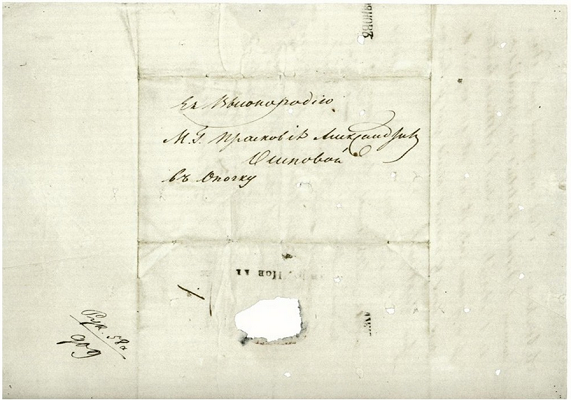 Ея Высокородію
М. Г. Прасковіѣ Александр
Осиповой
въ Опочку
Рук. 58а